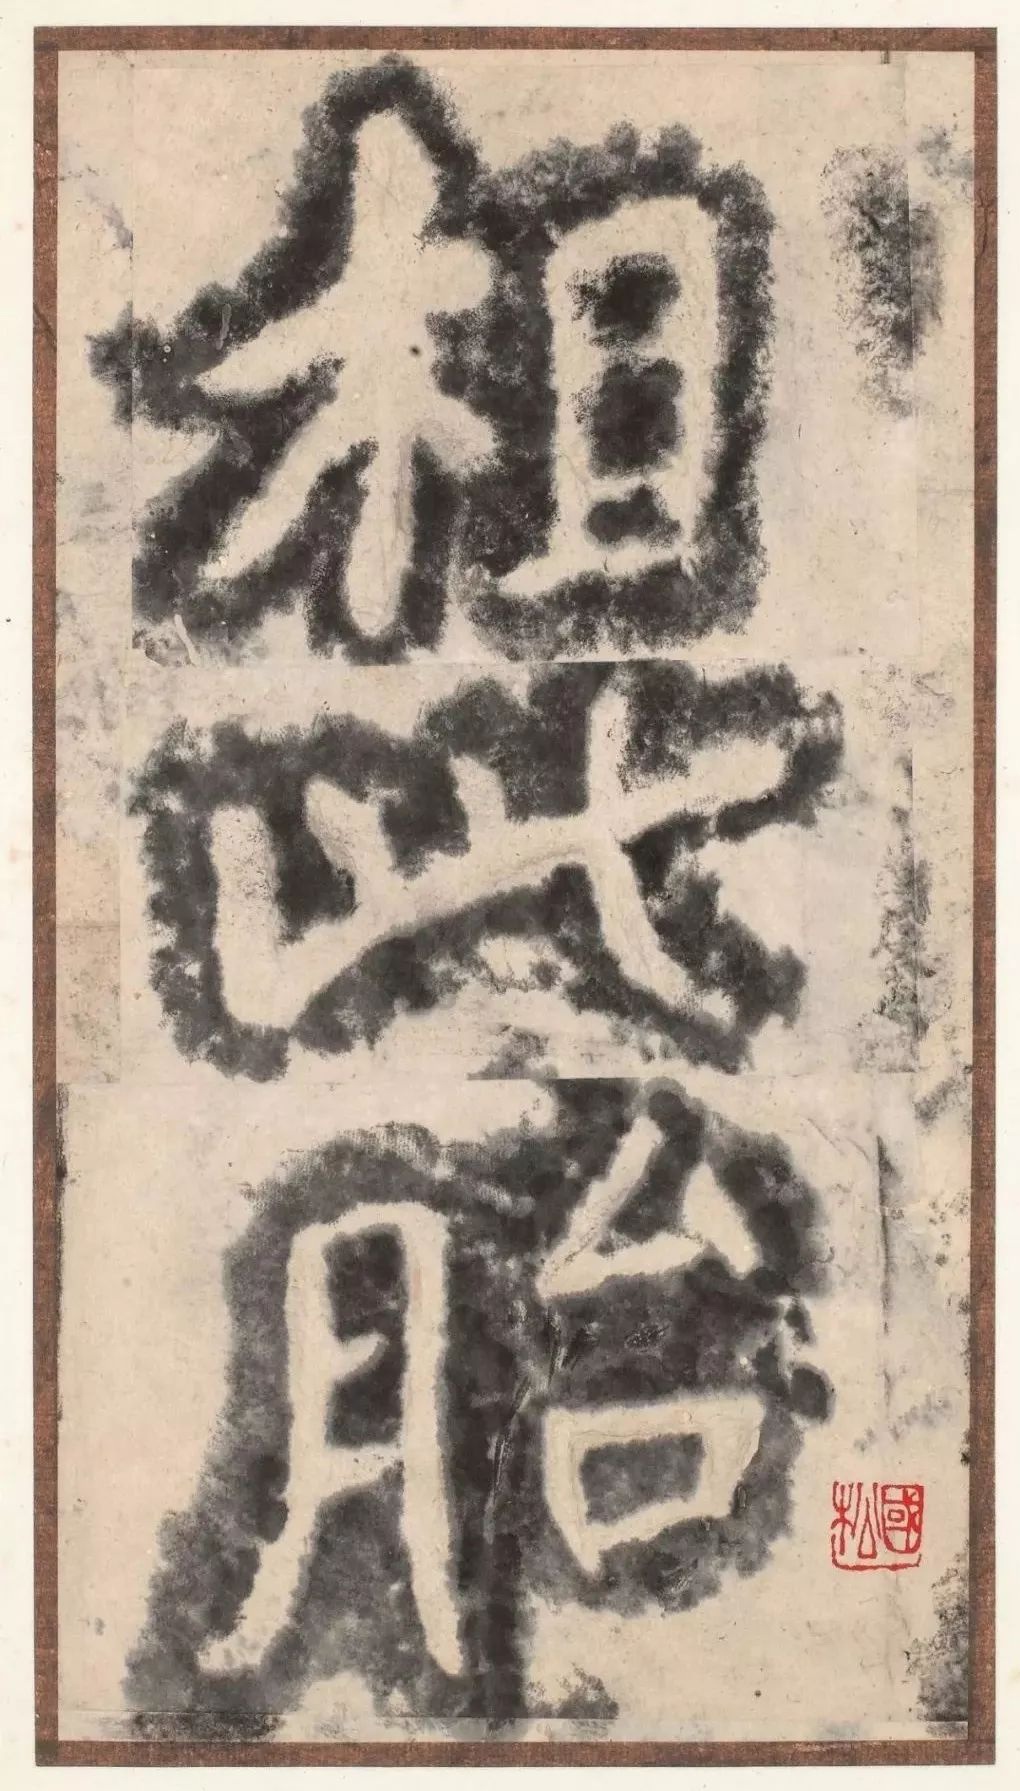 相此胎
國松